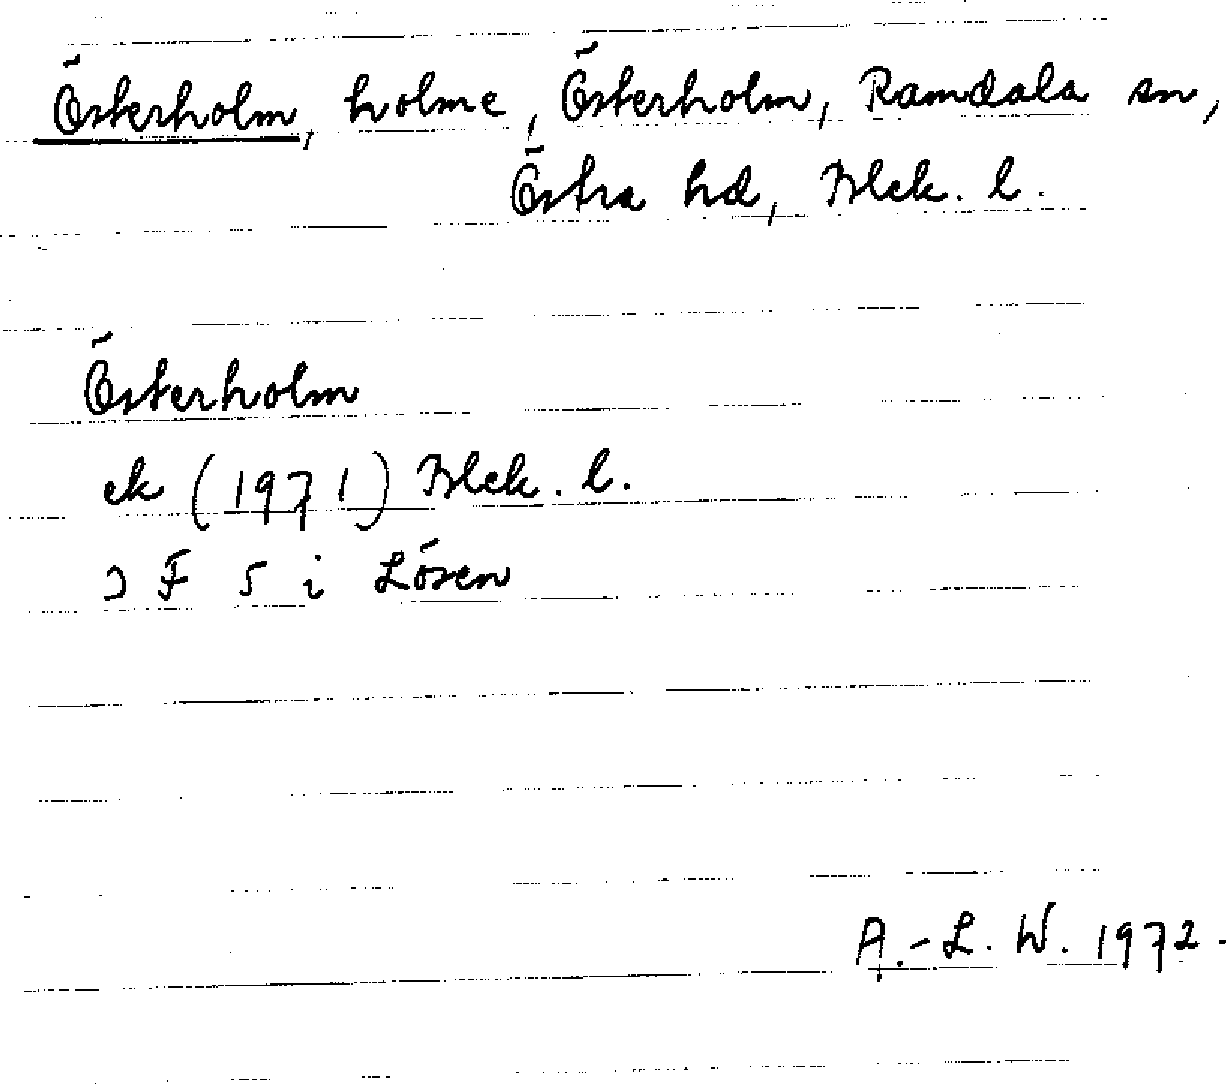 Österholm, holme, Österholm, Ramdala sn,
Östra hd, Blek. l.
Österholm
ek (1971) Blek. l.
3 F 5 i Lösen
A.-L. W. 1972.